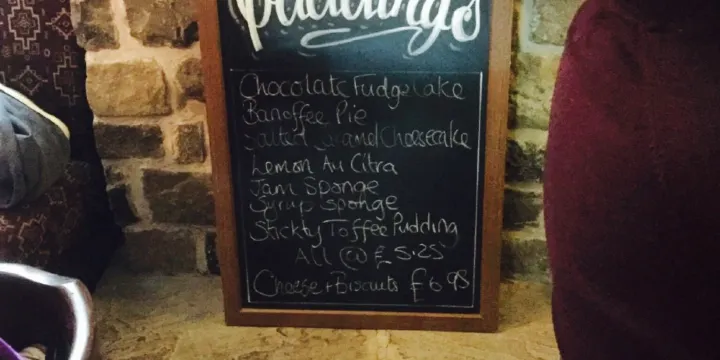 Puddings
Chocolate Fudge Cake
Banoffee Pie
Salted Caramel Cheesecake
Lemon Au Citra
Jam Sponge
Syrup Sponge
Stickty Toffee Pudding
All @ £5.25
Cheese + Biscuits £6.95